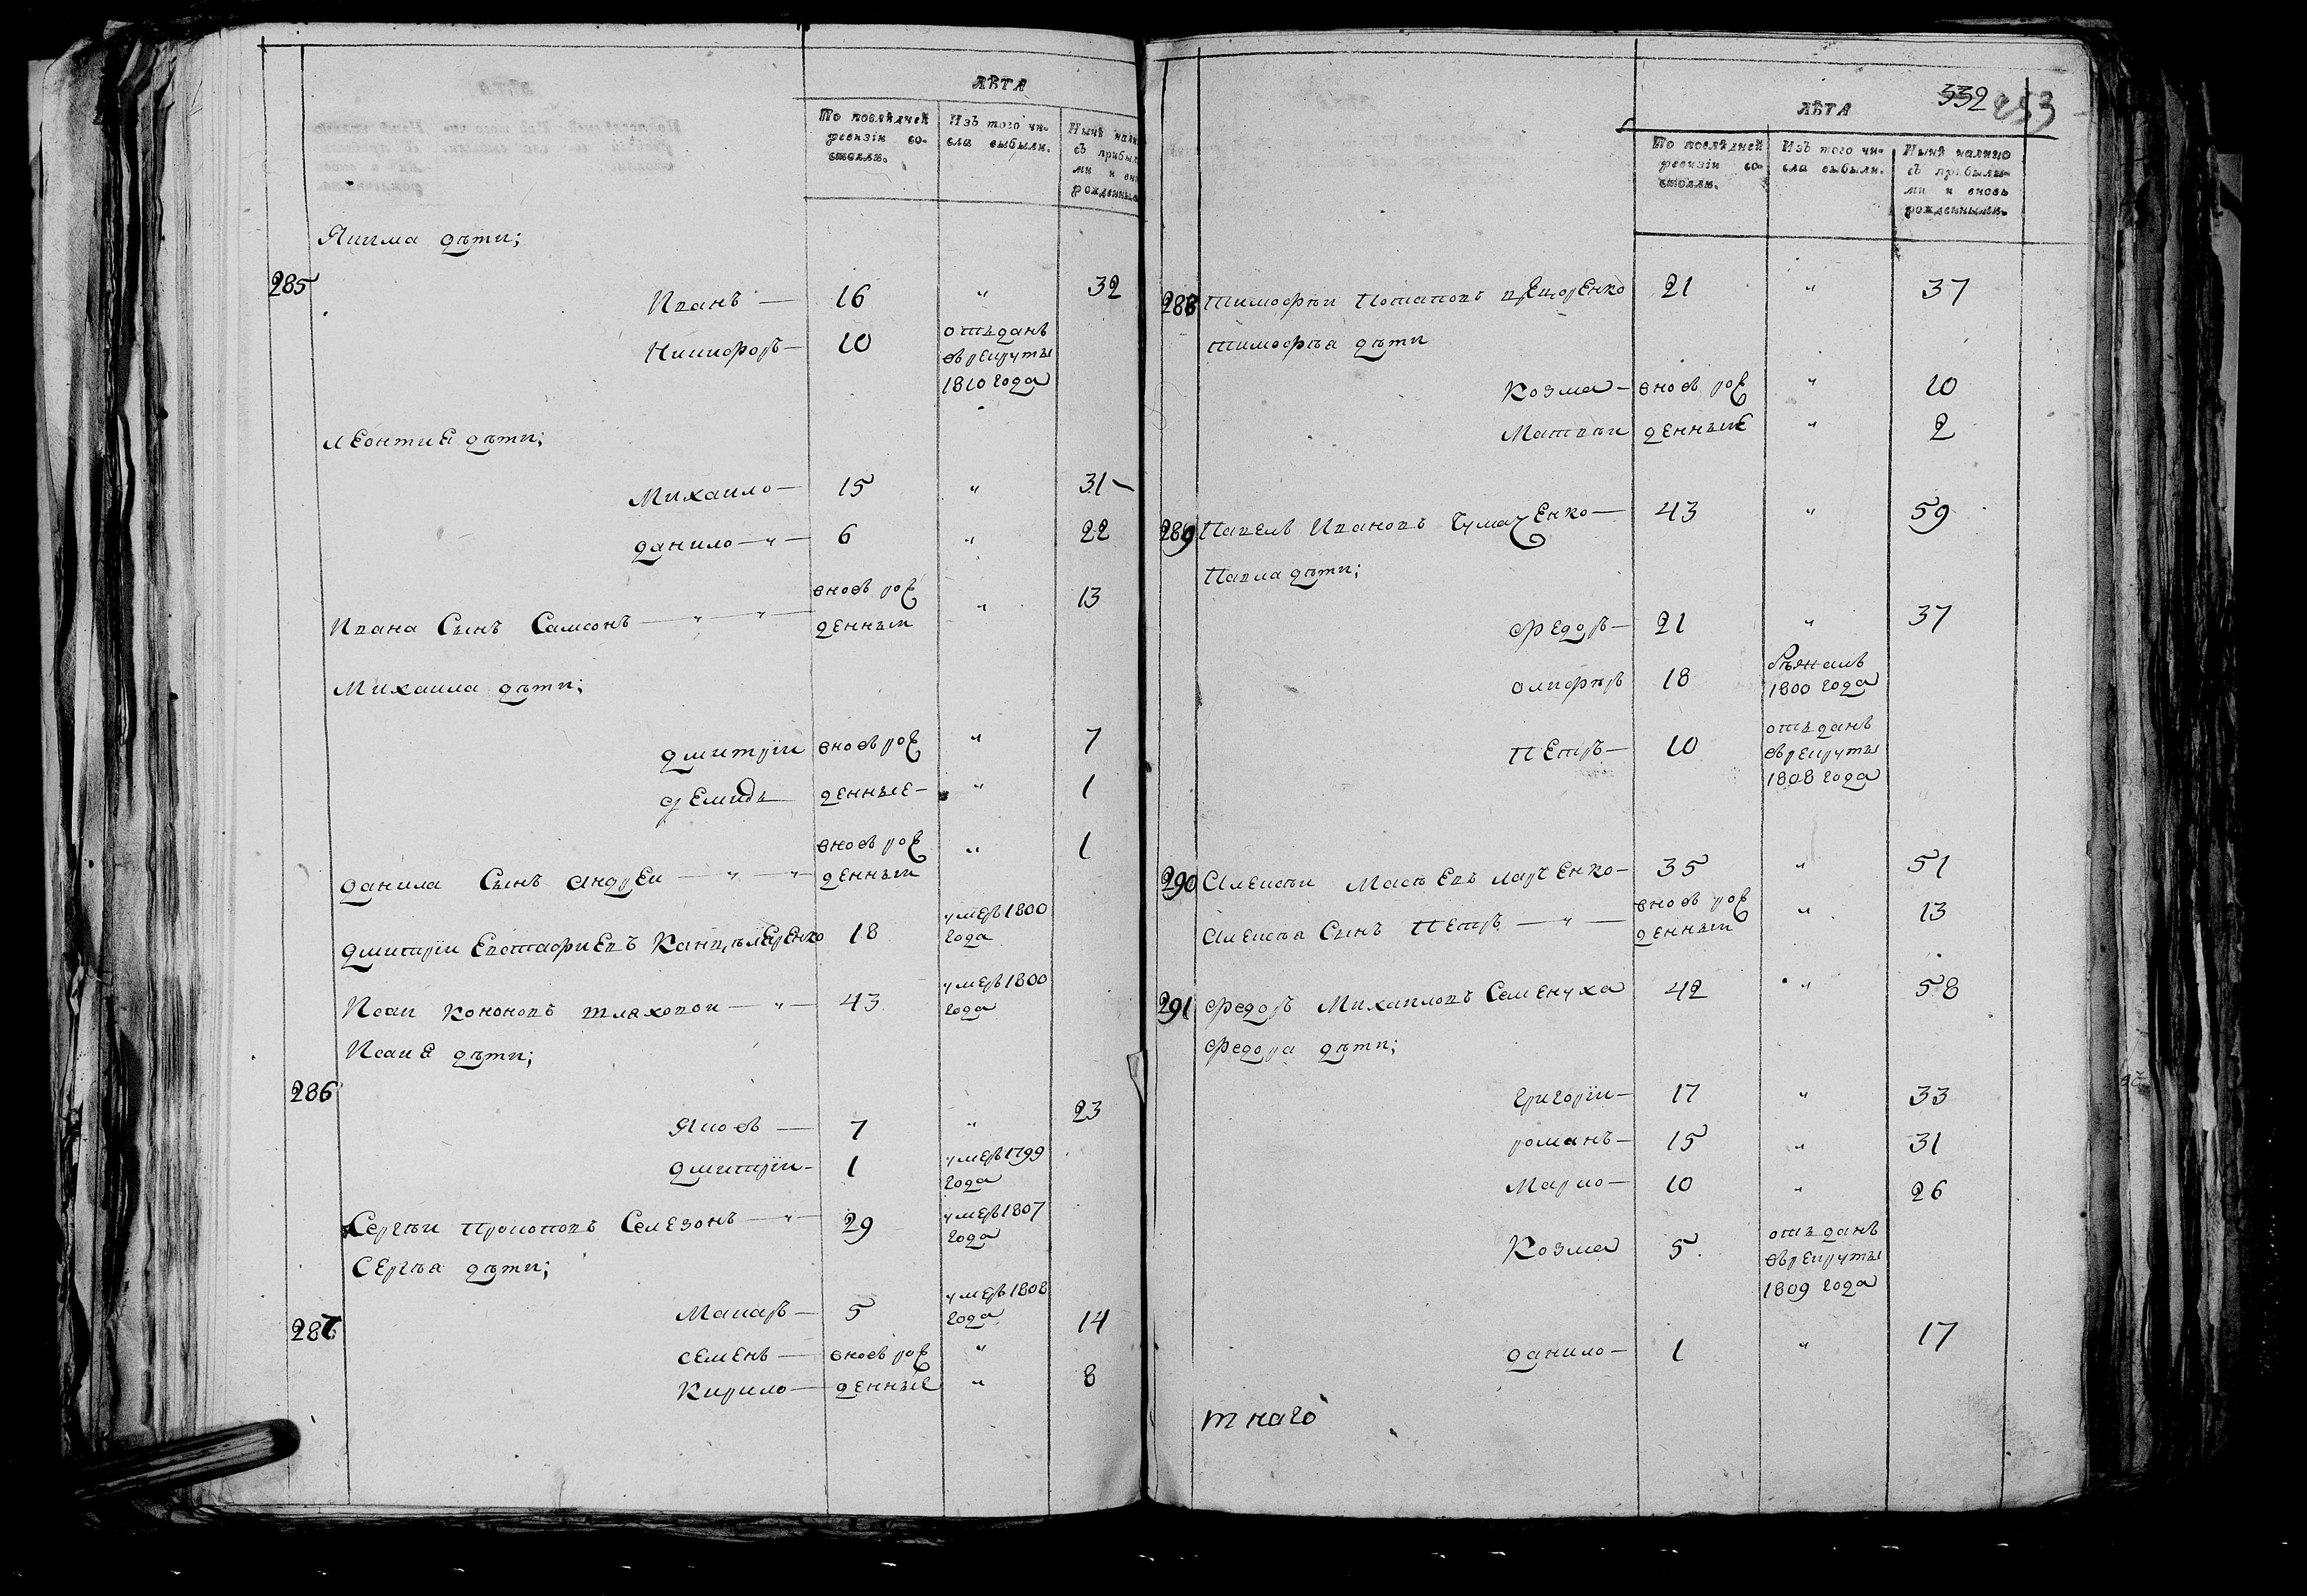 ЛѢТА
По послѣдней
ревизіи со-
стояли.
Изъ того чи-
сла выбыли.
Нынѣ нали
съ прибыл
ми и вн
рожденны
Якима дѣти;
285
Иванъ — 16 „ 32
Никифоръ — 10 отъданъ
въ рекруты
1810 года
леонтиЯ дѣти;
Михаило — 15 „ 31
данило — „ — 6 „ 22
вновь рож
Ивана Сынъ Самсонъ — „ — „ — денныи „ 13
Михаила дѣти;
дмитріи вновь рож „ 7
демидъ денные — „ 1
вновь рож
данила Сынъ андреи — „ — „ денныи „ 1
дмитріи Евстафиевъ 18 умеръ 1800
года
Исаи кононовъ шляховои — „ — 43 умеръ 1800
года
Исаия дѣти;
286
Яковъ — 7 „ 23
дмитріи — 1 умеръ 1799
года
Сергѣи прокоповъ Селезонъ — „ — 29 умеръ 1807
года
Сергѣа дѣти;
287
Макаръ — 5 умеръ 1808
года
семенъ — вновь рож „ 14
Кирило — денные „ 8
332 253
ЛѢТА
По послѣдней
ревизіи со-
стояли.
Изъ того чи-
сла выбыли.
Нынѣ налицо
съ прибылы-
ми и вновь
рожденными.
288 тимофѣи Потаповъ 21 „ 37
тимофѣа дѣти
Козма — вновь рож „ 10
Матвѣи денные „ 2
289 Павелъ Ивановъ Чумаченко — 43 „ 59
Павла дѣти;
федоръ — 21 „ 37
олиферъ 18 бѣжалъ
1800 года
петръ — 10 отъданъ
въ рекруты
1808 года
290 Алексѣи Масѣевъ марченко — 35 „ 51
Алексѣа Сынъ петръ — „ — вновь рож
денныи „ 13
291 федоръ Михаиловъ Семенуха 42 „ 58
федора дѣти;
григоріи — 17 „ 33
романъ — 15 „ 31
Марко — 10 „ 26
Козма 5 отъданъ
въ рекруты
1809 года
данило — 1 „ 17